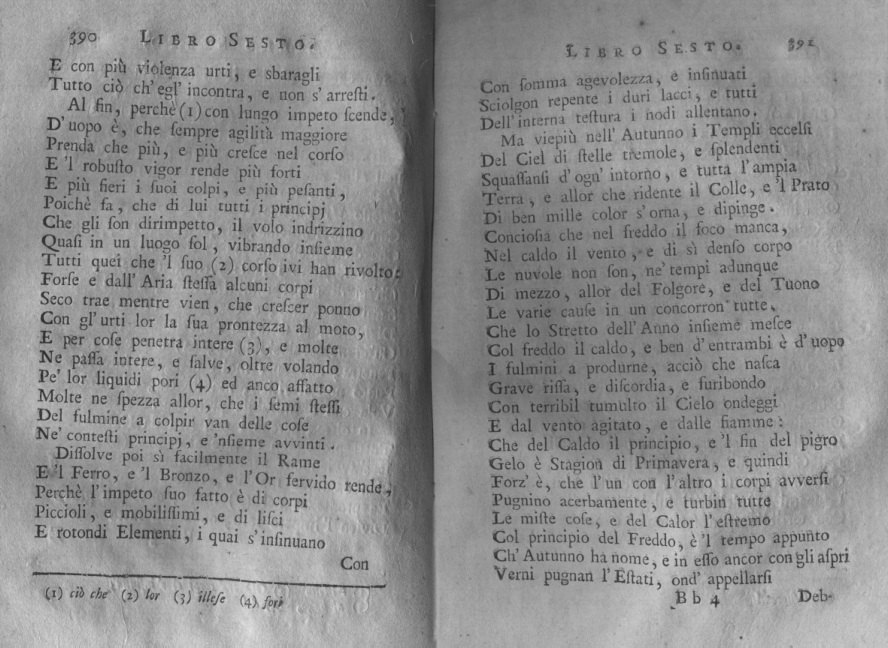 390 LIBRO SESTO.
E con più violenza urti, e sbaragli
Tutto ciò ch'egl' incontra, e non s'arreſti.
Al fin, perchè (1) con lungo impeto ſcende,
D'uopo è, che ſempre agilità maggiore
Prenda che più, e più creſce nel corſo
E 'l robuſto vigor rende più forti
E più fieri i ſuoi colpi, e più peſanti,
Poichè fa, che di lui tutti i principj
Che gli ſon dirimpetto, il volo indrizzino
Quaſi in un luogo ſol, vibrando inſieme
Tutti quei che 'l ſuo (2) corſo ivi han rivolto.
Forſe e dall' Aria ſteſſa alcuni corpi
Seco trae mentre vien, che creſcer ponno
Con gl'urti lor la ſua prontezza al moto,
E per coſe penetra intere (3), e molte
Ne paſſa intere, e ſalve, oltre volando
Pe' lor liquidi pori (4) ed anco affatto
Molte ne ſpezza allor, che i ſemi ſteſſi
Del fulmine a colpir van delle coſe
Ne' conteſti principj, e 'nſieme avvinti.
Diſſolve poi sì facilmente il Rame
E 'l Ferro, e 'l Bronzo, e l'Or fervido rende,
Perchè l'impeto ſuo fatto è di corpi
Piccioli, e mobiliſſimi, e di liſci
E rotondi Elementi, i quai s'inſinuano
Con
(1) ciò che (2) lor (3) illeſe (4) fori
LIBRO SESTO. 391
Con ſomma agevolezza, e inſinuati
Sciolgon repente i duri lacci, e tutti
Dell'interna teſtura i nodi allentano.
Ma viepiù nell' Autunno i Templi eccelſi
Del Ciel di ſtelle tremole, e ſplendenti
Squaſſanſi d'ogn' intorno, e tutta l'ampia
Terra, e allor che ridente il Colle, e 'l Prato
Di ben mille color s'orna, e dipinge.
Concioſia che nel freddo il foco manca,
Nel caldo il vento, e di sì denſo corpo
Le nuvole non ſon, ne' tempi adunque
Di mezzo, allor del Folgore, e del Tuono
Le varie cauſe in un concorron tutte,
Che lo Stretto dell'Anno inſieme meſce
Col freddo il caldo, e ben d'entrambi è d'uopo
I fulmini a produrne, acciò che naſca
Grave riſſa, e diſcordia, e furibondo
Con terribil tumulto il Cielo ondeggi
E dal vento agitato, e dalle fiamme:
Che del Caldo il principio, e 'l fin del pigro
Gelo è Stagion di Primavera, e quindi
Forz' è, che l'un con l'altro i corpi avverſi
Pugnino acerbamente, e turbin tutte
Le miſte coſe, e del Calor l'eſtremo
Col principio del Freddo, è 'l tempo appunto
Ch' Autunno ha nome, e in eſſo ancor con gli aſpri
Verni pugnan l'Eſtati, ond' appellarſi
B b 4 Deb-